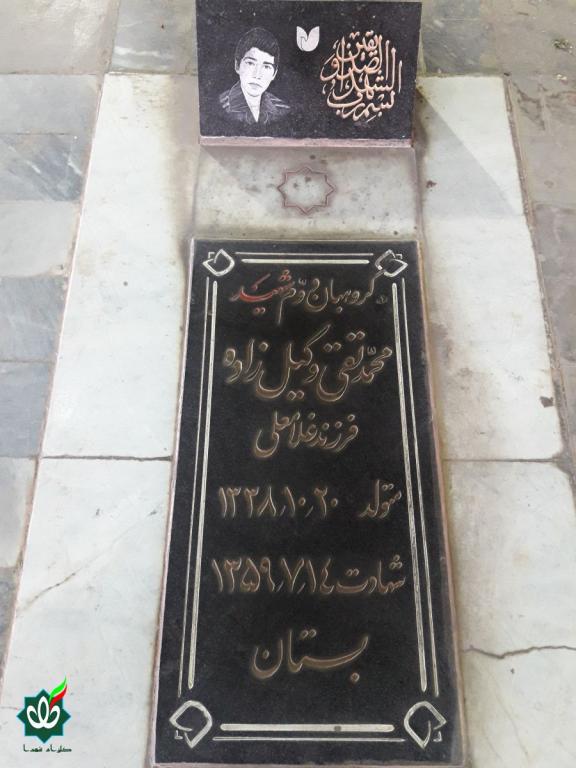 بسم رب الشهداء و الصدیقین
گروهبان دوّم شهید
محمّد تقی وکیل زاده
فرزند غلامعلی
متولد ۱۳۳۸٫۱۰٫۲۰
شهادت ۱۳۵۹٫۷٫۱٤
بستان
گلزار شهدا